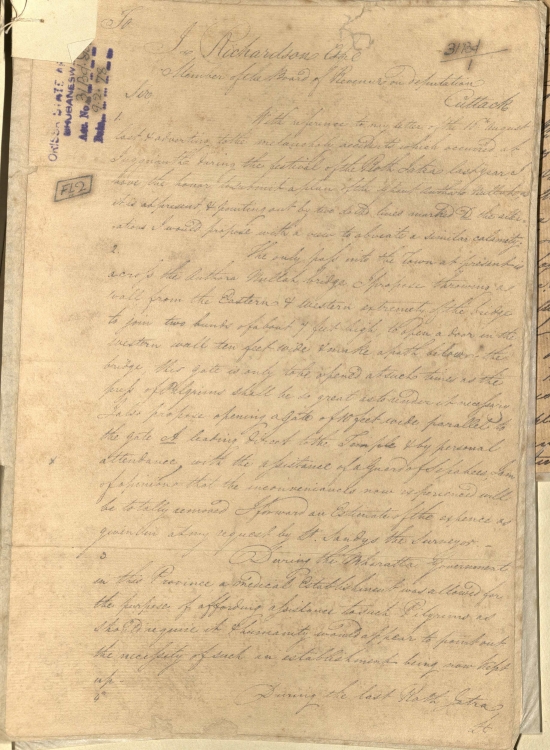 To
J. Richardson Esqr
Member of the Board of Revenue on deputation
Cuttack
Sir
1.
With reference to my letter of the 11th August
last & adverting to the melancholy accidents which occurred at
Juggernath during the festival of the Ruth Jatra last year I
have the honor to submit a plan of the
as at present & pointing out by two lines marked the
I would propose with a view to obviate a similar calamity.
2.
The only pass into the Town at present is
across the Nullah bridge, I propose throwing a
wall from the Eastern & Western extremity of the bridge
to join two bunds of about 7 feet high, to open a door in the
western wall ten feet wide & make a path below the
bridge, this gate is only to be opened at such times as the
press of Pilgrims shall be so great as to render it necessary
I also propose opening a gate of 10 feet wide parallel to
the gate A leading to the Temple & by personal
attendance, with the assistance of a Guard of Sepahees I am
of opinion that the inconveniences now experienced will
be totally removed I forward an Estimate of the expence as
given in at my request by Sandys the Surveyor.
3
During the Maharatta Government
in this Province a Medical Establishment was allowed for
the purpose of affording assistance to such Pilgrims as
should require it & humanity would appear to point out
the necessity of such an establishment being now kept
up
During the last Ruth Jatra
31784
1
ORISSA STATE
BHUBANESW
Acc. No.
Date
FL2